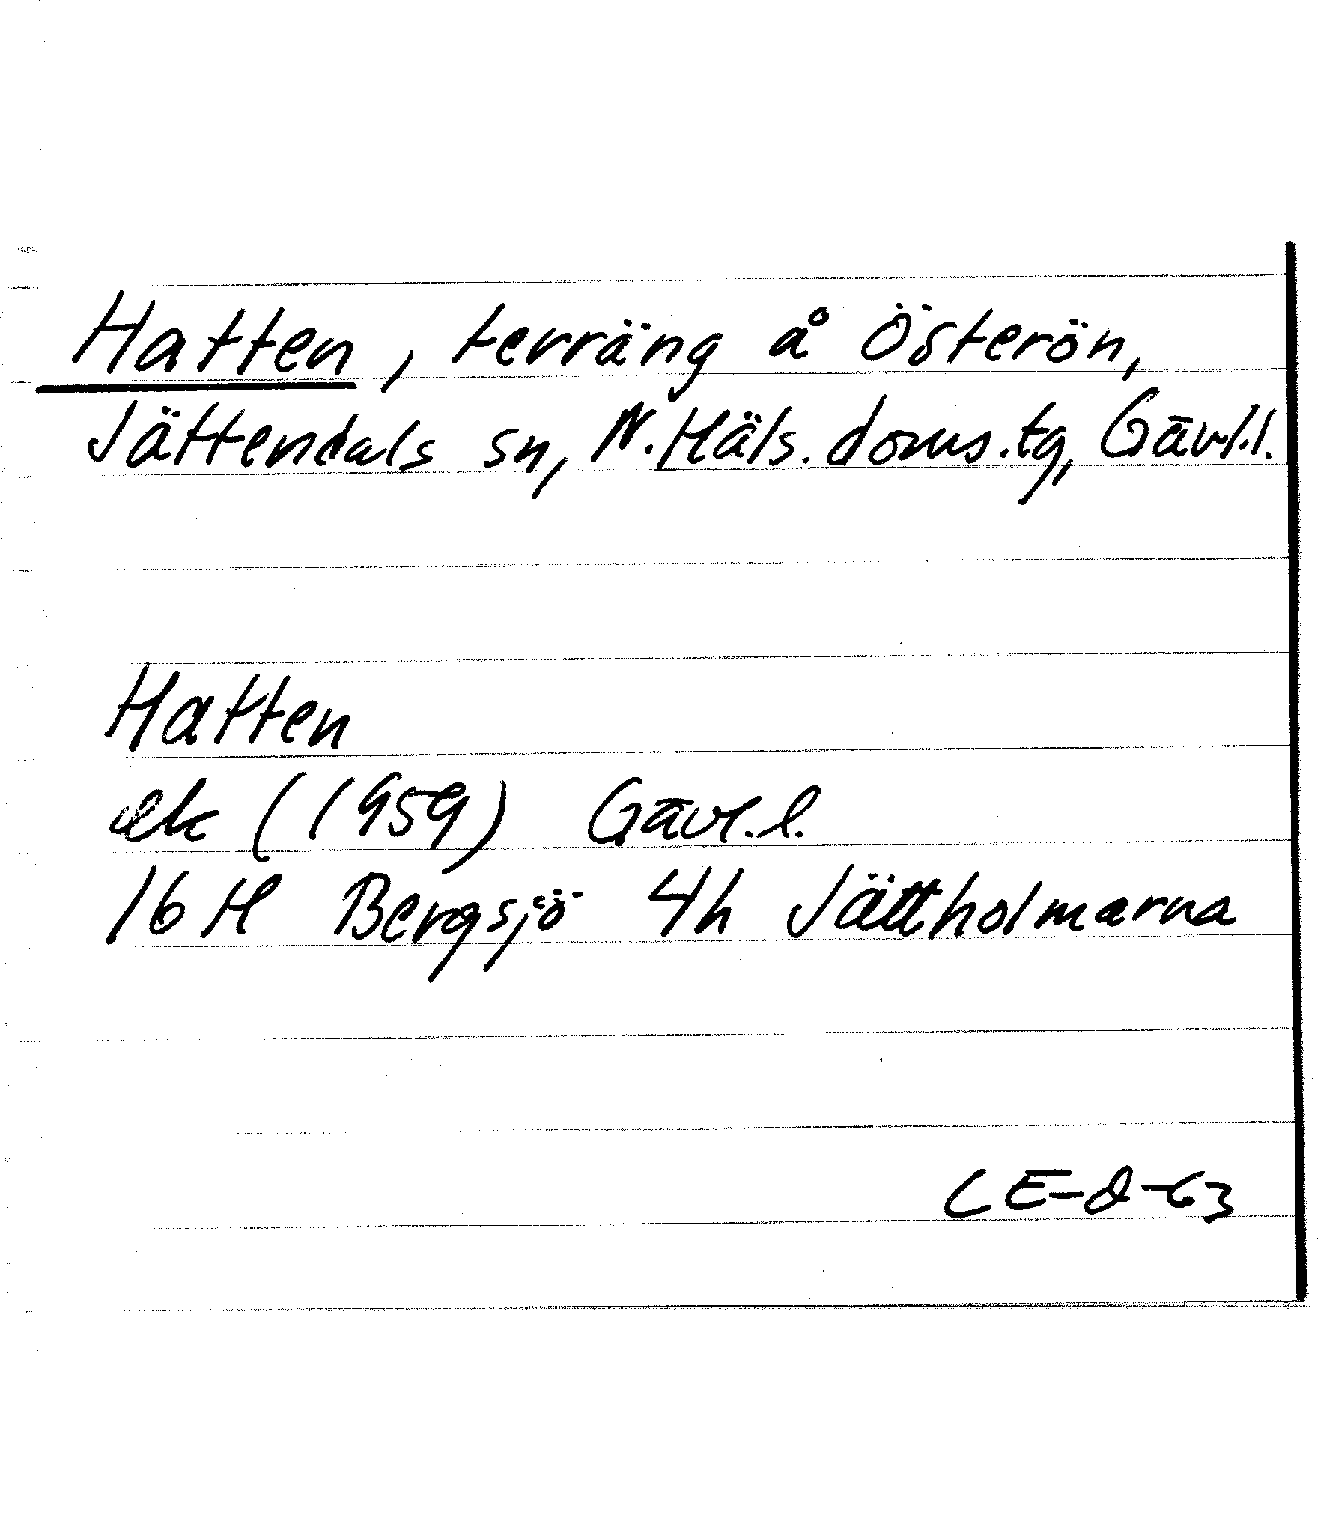 Hatten, terräng å Österön,
Jättendals sn, N. Häls. doms. tg, Gävl.l.
Hatten
ek (1959) Gävl.l.
16 H Bergsjö 4h Jättholmarna
CE-d-63